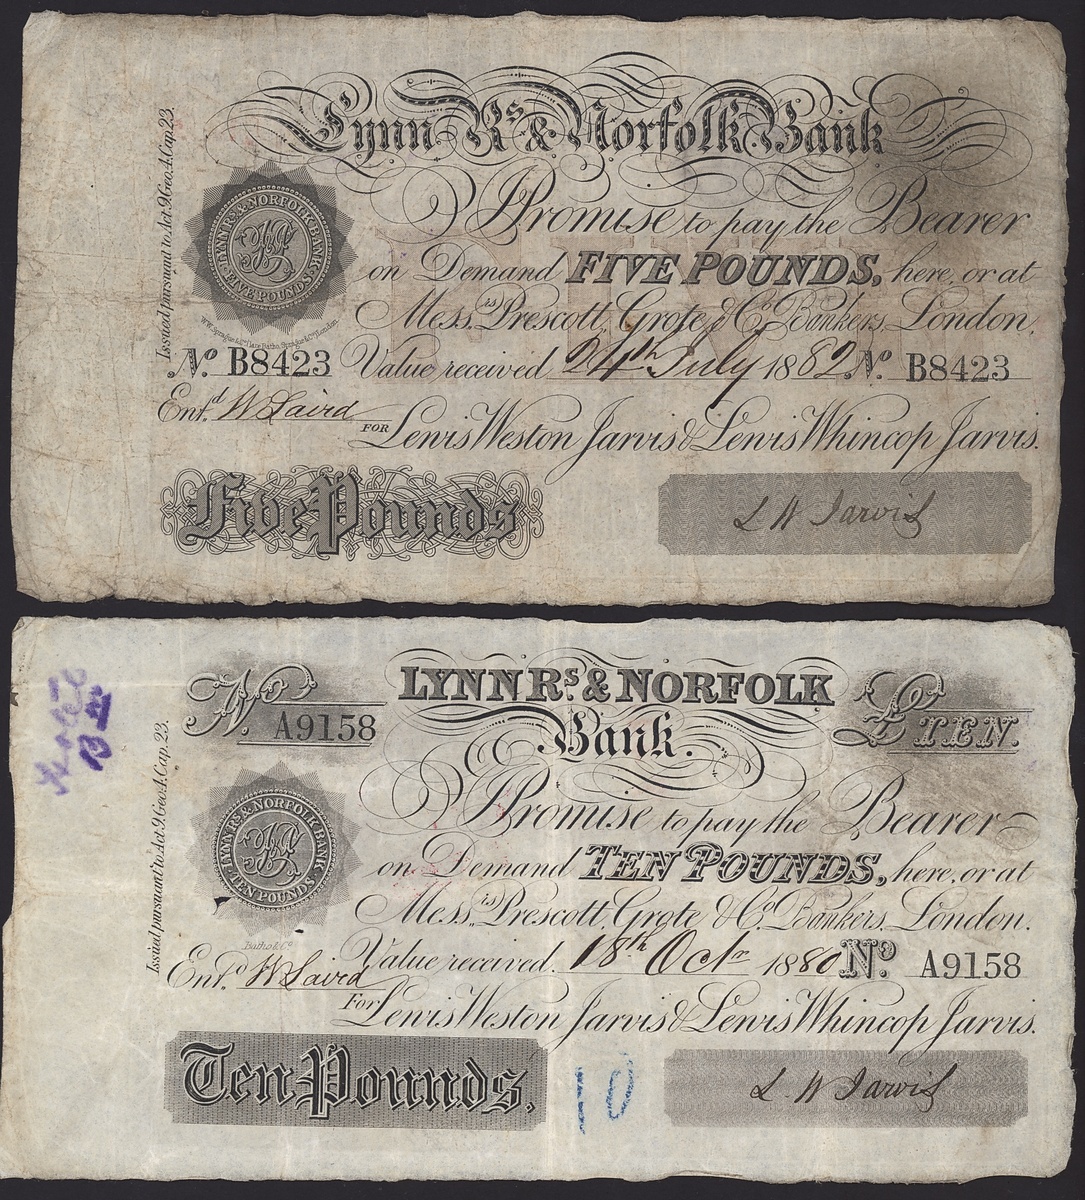 Lynn Rs & Norfolk Bank
Issued pursuant to Act 9 Geo. 4. Cap. 23.
I Promise to pay the Bearer
LYNN RS & NORFOLK BANK
FIVE POUNDS
on Demand FIVE POUNDS, here, or at
Messrs. Prescott, Grote & Co. Bankers, London.
No. B8423 Value received 24th July 1882 No. B8423
Entd. W Laird
FOR Lewis Weston Jarvis & Lewis Whincop Jarvis.
Five Pounds
L W Jarvis
LYNN Rs. & NORFOLK
No. A9158
Bank.
£ TEN.
Issued pursuant to Act. 9 Geo. 4. Cap. 23.
I Promise to pay the Bearer
LYNN RS & NORFOLK BANK
TEN POUNDS
on Demand TEN POUNDS, here, or at
Messrs. Prescott, Grote & Co. Bankers, London.
Batho & Co.
Value received. 18th Octr 1880 No. A9158
Entd. W Laird
For Lewis Weston Jarvis & Lewis Whincop Jarvis.
Ten Pounds,
10
L. W Jarvis